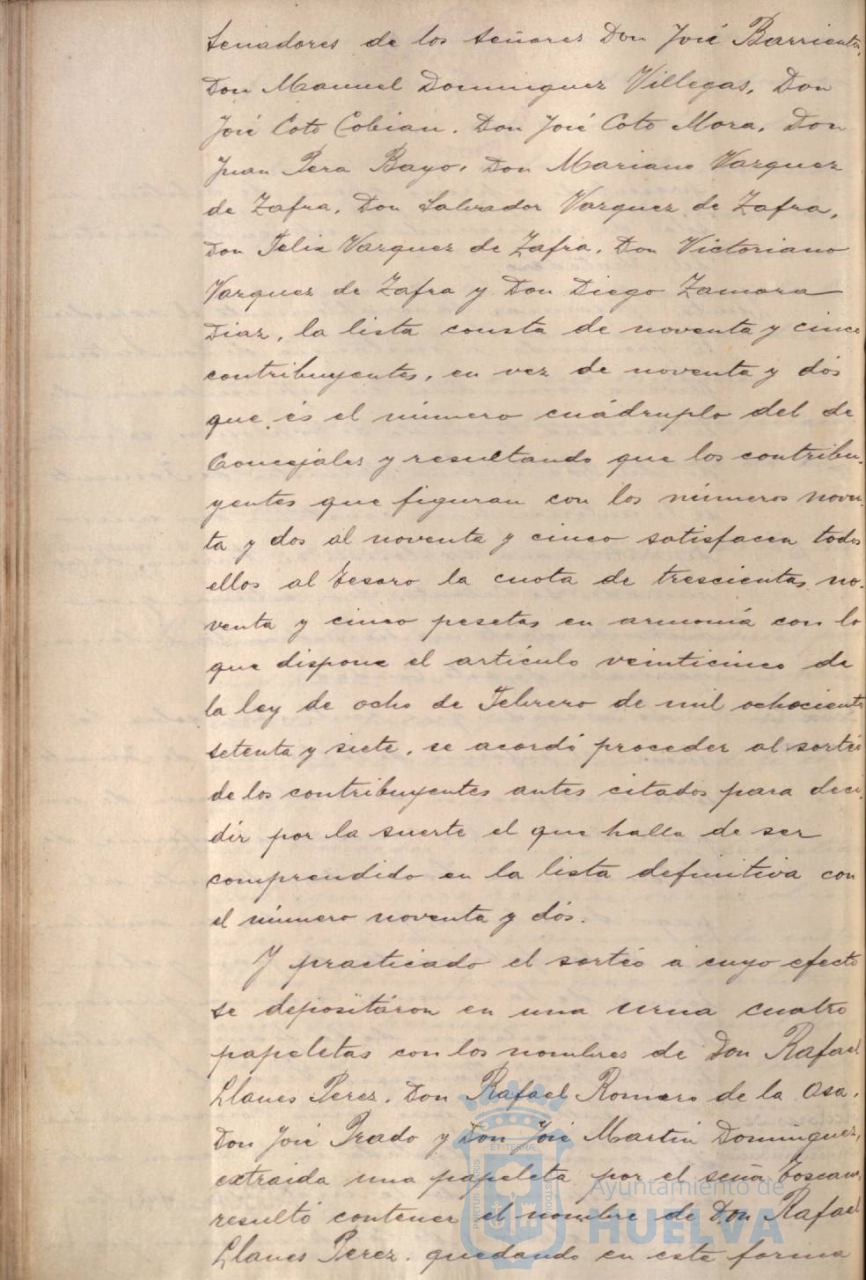 Senadores de los Señores Don José Barrientos,
Don Manuel Dominguez Villegas, Don
José Coto Cobian, Don José Coto Mora, Don
Juan Pera Bayo, Don Mariano Vazquez
de Zafra, Don Salvador Vazquez de Zafra,
Don Felix Vazquez de Zafra, Don Victoriano
Vazquez de Zafra y Don Diego Zamora
Diaz, la lista consta de noventa y cinco
contribuyentes, en vez de noventa y dós
que és el número cuádruplo del de
Concejales y resultando que los contribu-
yentes que figuran con los números noven-
ta y dos al noventa y cinco satisfacen todos
ellos al Tesoro la cuota de trescientas no-
venta y cinco pesetas en armonía con lo
que dispone el artículo veinticinco de
la ley de ocho de Febrero de mil ochocientos
setenta y siete, se acordó proceder al sorteo
de los contribuyentes antes citados para deci-
dir por la suerte el que halla de ser
comprendido en la lista definitiva con
el número noventa y dós.
Y practicado el sortéo á cuyo efecto
se depositáron en una urna cuatro
papeletas con los nombres de Don Rafael
Llanes Perez, Don Rafael Romero de la Osa,
Don José Prado y Don José Martin Dominguez,
extraida una papeleta por el señor Toscano,
resultó contener el nombre de Don Rafael
Llanes Perez, quedando en esta forma
Ayuntamiento de
HUELVA